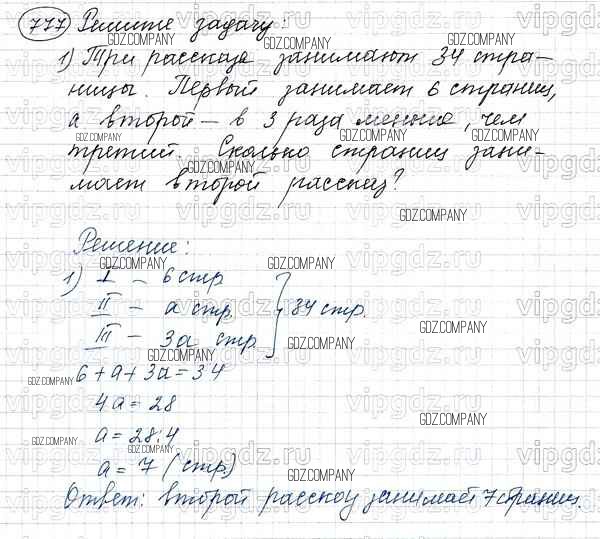 777 Решите задачу:
1) Три рассказа занимают 34 стра-
ницы. Первый занимает 6 страниц,
а второй – в 3 раза меньше, чем
третий. Сколько страниц зани-
мает второй рассказ?
Решение:
1) I – 6 стр.
II – а стр. } 34 стр.
III – 3а стр.
6 + а + 3а = 34
4а = 28
а = 28:4
а = 7 (стр.)
Ответ: второй рассказ занимает 7 страниц.
GDZ.COMPANY
vipgdz.ru